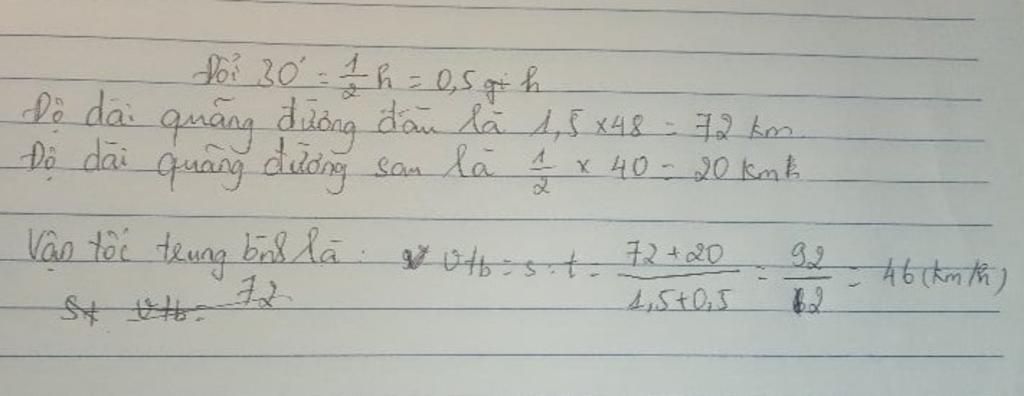 Đổi 30' = 1/2 h = 0,5 h
Độ dài quãng đường đầu là 1,5 × 48 = 72 km
Độ dài quãng đường sau là 1/2 × 40 = 20 km
Vận tốc trung bình là : vtb = s : t = (72 + 20)/(1,5 + 0,5) = 92/2 = 46 (km/h)
St vtb = 72